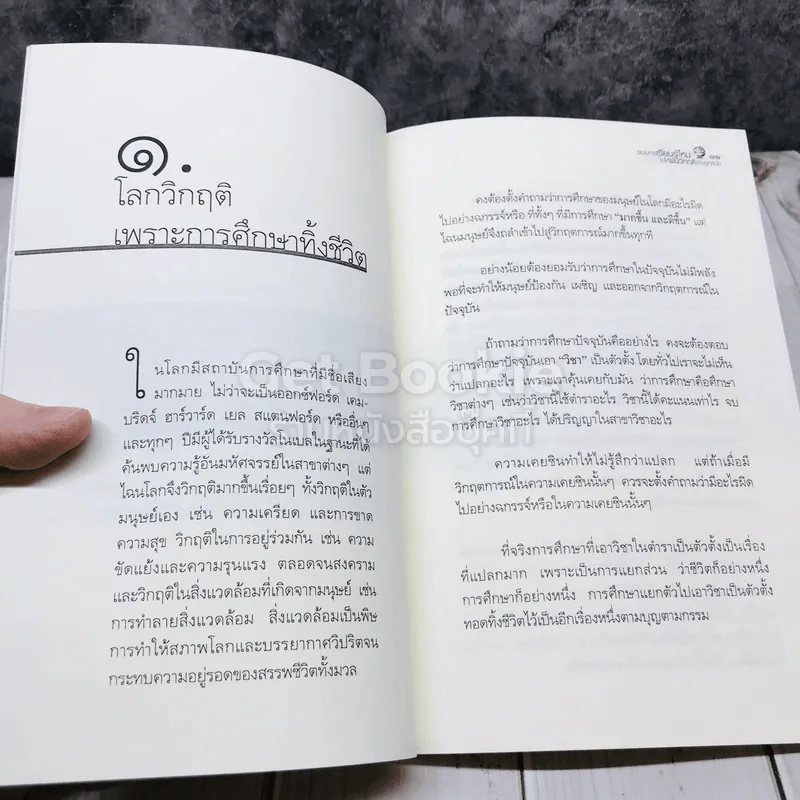 ๑.
โลกวิกฤติ
เพราะการศึกษาทิ้งชีวิต
ในโลกมีสถาบันการศึกษาที่มีชื่อเสียง
มากมาย ไม่ว่าจะเป็นออกซ์ฟอร์ด เคม-
บริดจ์ ฮาร์วาร์ด เยล สแตนฟอร์ด หรืออื่นๆ
และทุกๆ ปีมีผู้ได้รับรางวัลโนเบลในฐานะที่ได้
ค้นพบความรู้อันมหัศจรรย์ในสาขาต่างๆ แต่
ไฉนโลกจึงวิกฤติมากขึ้นเรื่อยๆ ทั้งวิกฤติในตัว
มนุษย์เอง เช่น ความเครียด และการขาด
ความสุข วิกฤติในการอยู่ร่วมกัน เช่น ความ
ขัดแย้งและความรุนแรง ตลอดจนสงคราม
และวิกฤติในสิ่งแวดล้อมที่เกิดจากมนุษย์ เช่น
การทำลายสิ่งแวดล้อม สิ่งแวดล้อมเป็นพิษ
การทำให้สภาพโลกและบรรยากาศวิปริตจน
กระทบความอยู่รอดของสรรพชีวิตทั้งมวล
ระบบการเรียนรู้ใหม่ ๑๑
ไปให้พ้นวิกฤติแห่งยุคสมัย
คงต้องตั้งคำถามว่าการศึกษาของมนุษย์ในโลกมีอะไรผิด
ไปอย่างฉกรรจ์หรือ ที่ทั้งๆ ที่มีการศึกษา “มากขึ้น และดีขึ้น” แต่
ไฉนมนุษย์จึงถลำเข้าไปสู่วิกฤตการณ์มากขึ้นทุกที
อย่างน้อยต้องยอมรับว่าการศึกษาในปัจจุบันไม่มีพลัง
พอที่จะทำให้มนุษย์ป้องกัน เผชิญ และออกจากวิกฤตการณ์ใน
ปัจจุบัน
ถ้าถามว่าการศึกษาปัจจุบันคืออย่างไร คงจะต้องตอบ
ว่าการศึกษาปัจจุบันเอา “วิชา” เป็นตัวตั้ง โดยทั่วไปเราจะไม่เห็น
ว่าแปลกอะไร เพราะเราคุ้นเคยกับมัน ว่าการศึกษาคือศึกษา
วิชาต่างๆ เช่นว่าวิชานี้ใช้ตำราอะไร วิชานี้ได้คะแนนเท่าไร จบ
การศึกษาวิชาอะไร ได้ปริญญาในสาขาวิชาอะไร
ความเคยชินทำให้ไม่รู้สึกว่าแปลก แต่ถ้าเมื่อมี
วิกฤตการณ์ในความเคยชินนั้นๆ ควรจะตั้งคำถามว่ามีอะไรผิด
ไปอย่างฉกรรจ์หรือในความเคยชินนั้นๆ
ที่จริงการศึกษาที่เอาวิชาในตำราเป็นตัวตั้งเป็นเรื่อง
ที่แปลกมาก เพราะเป็นการแยกส่วน ว่าชีวิตก็อย่างหนึ่ง
การศึกษาก็อย่างหนึ่ง การศึกษาแยกตัวไปเอาวิชาเป็นตัวตั้ง
ทอดทิ้งชีวิตไว้เป็นอีกเรื่องหนึ่งตามบุญตามกรรม
Get Bookie
รวมหนังสือยุคที่